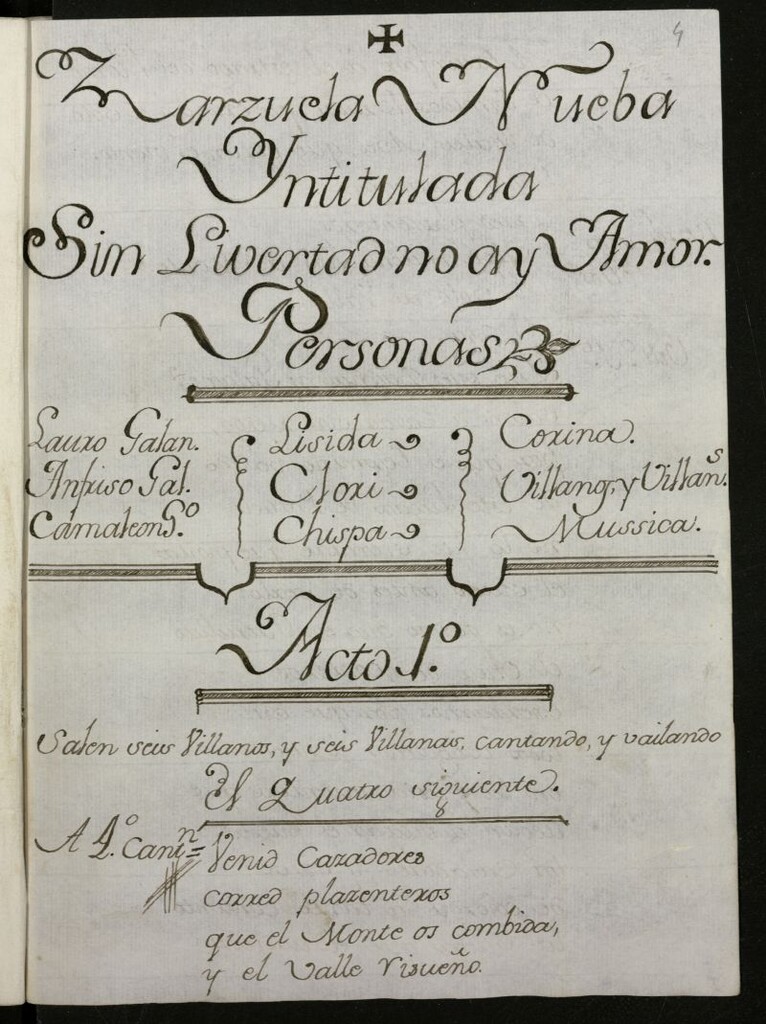 4
Zarzuela Nueba
Yntitulada
Sin Livertad no ay Amor.
Personas
Lauro Galan. Lisida Corina.
Anfriso Gal. Clori Villanos, y Villans.
Camaleon Go. Chispa Mussica.
Acto 1.o
Salen seis Villanos, y seis Villanas, cantando, y vailando
El Quatro siguiente.
A 4.o Cantn = Venid Cazadores
corred plazenteros
que el Monte os combida,
y el Valle risueño.